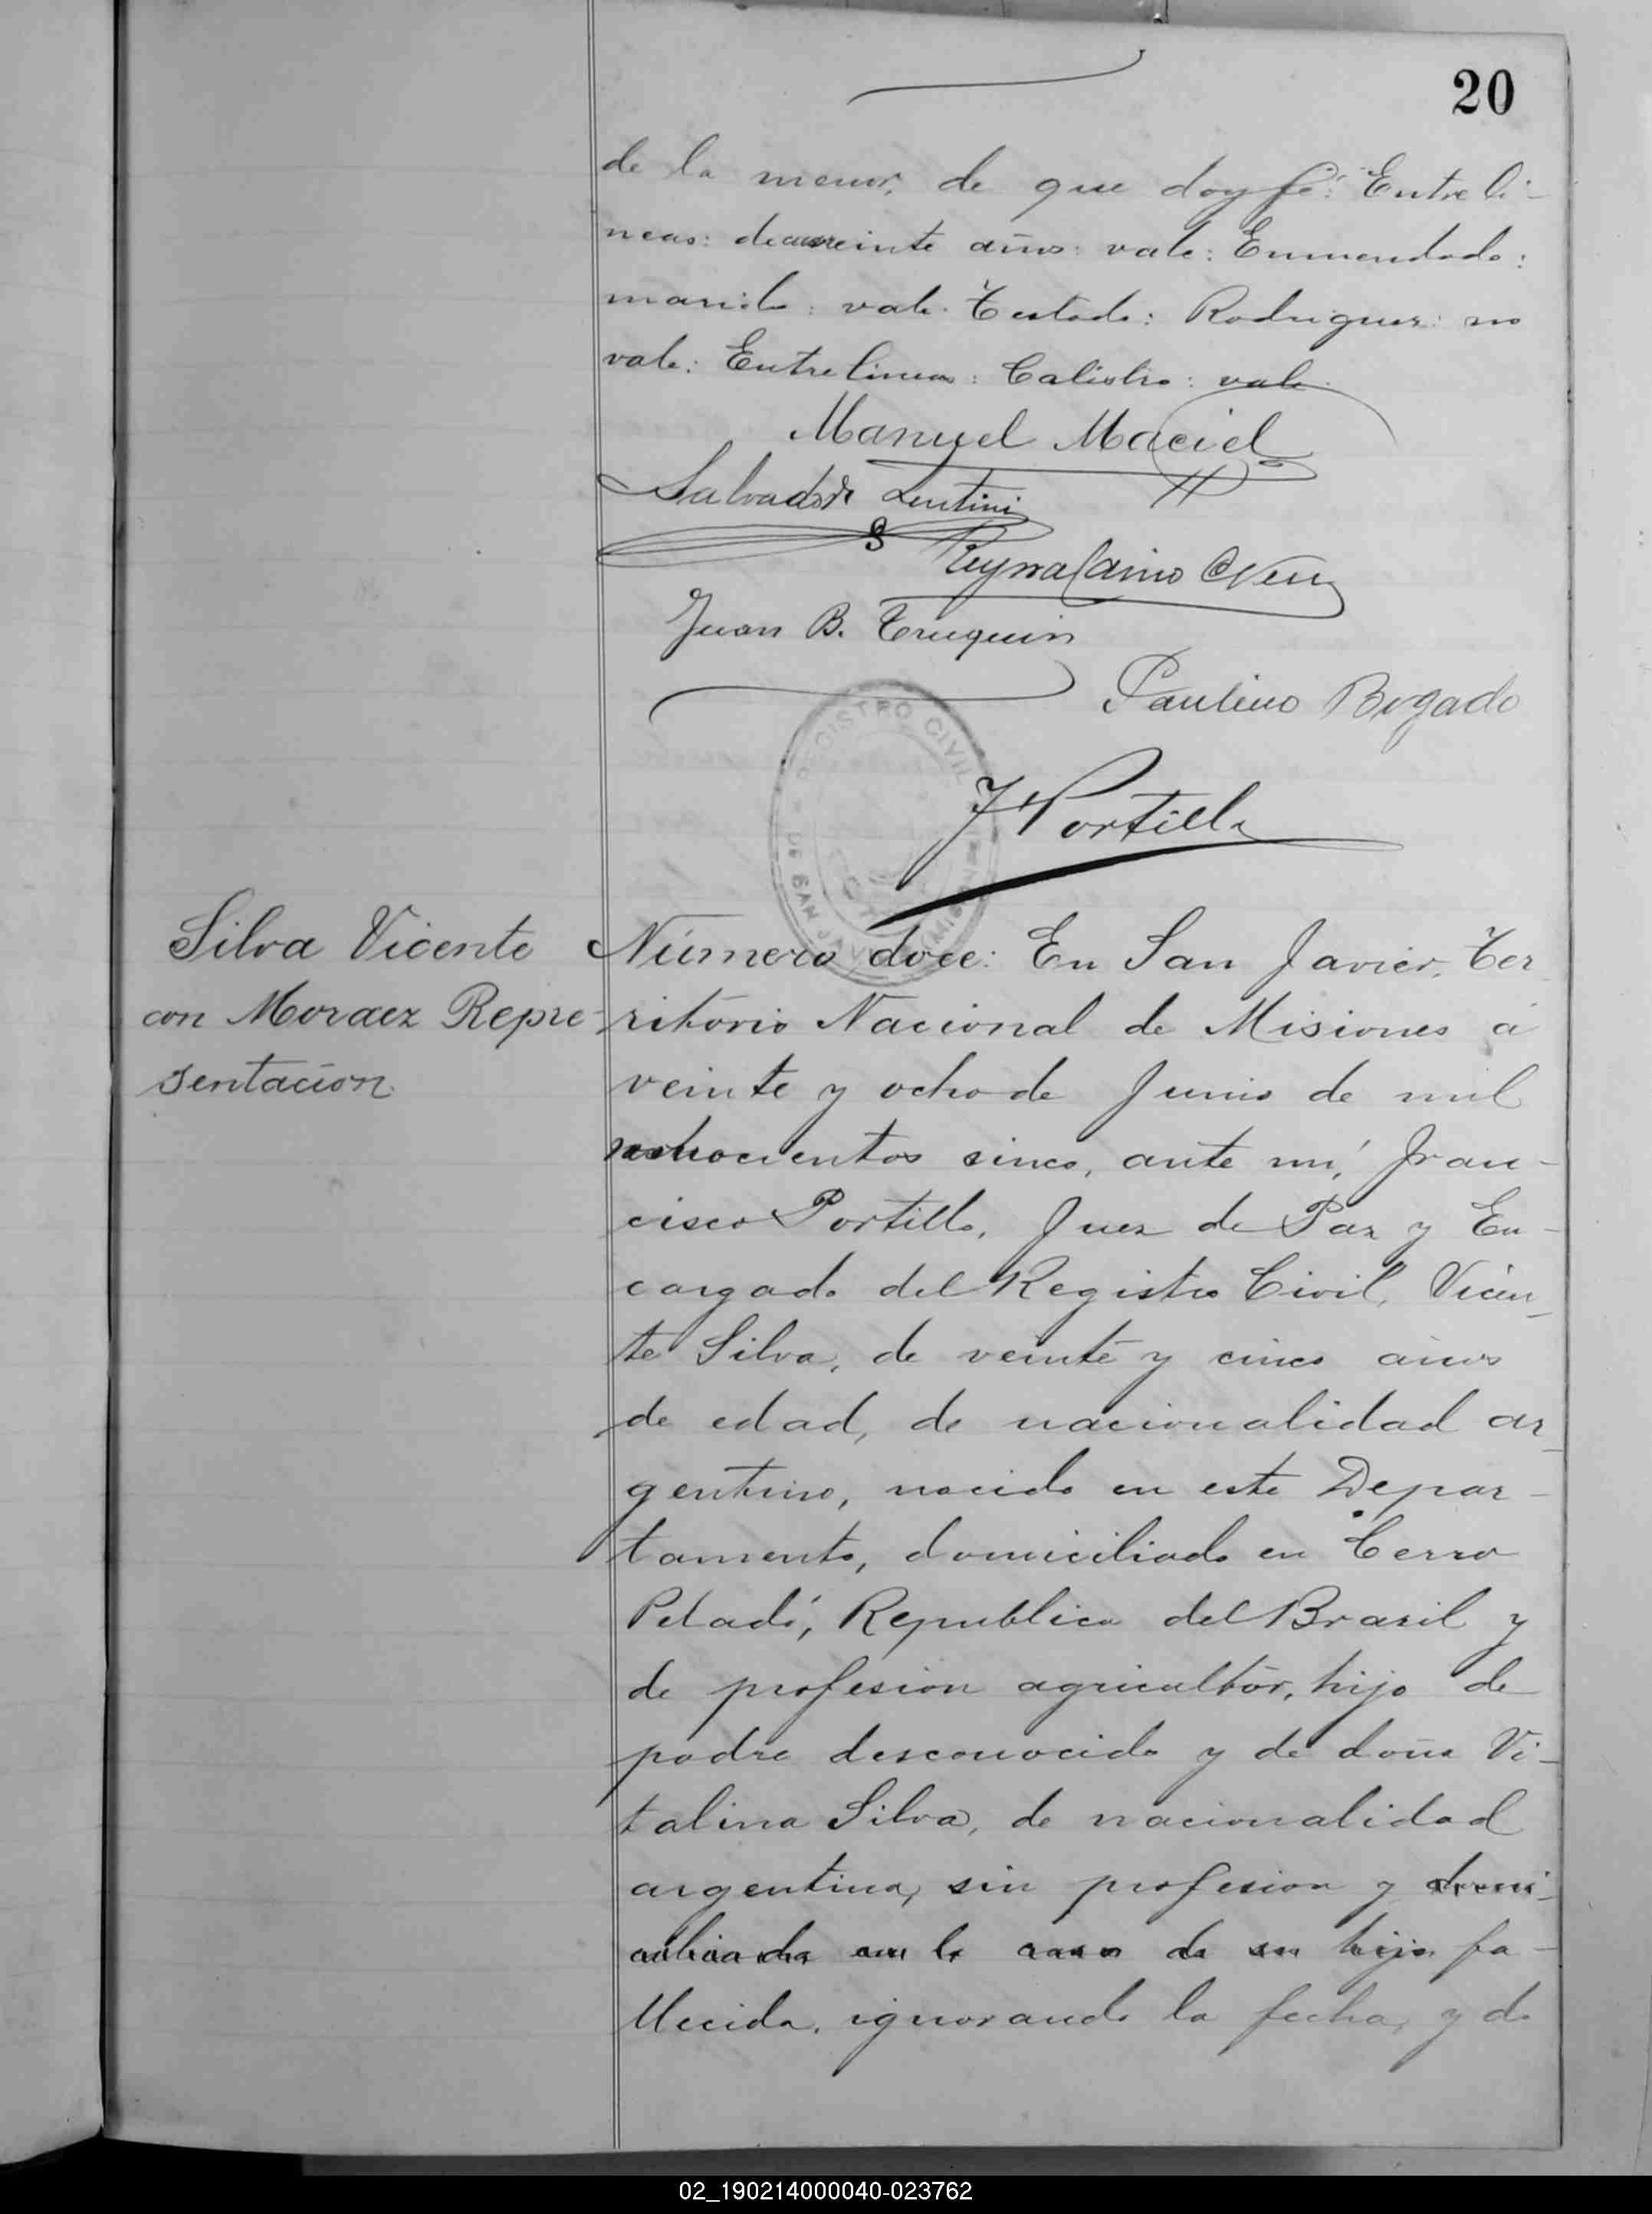 20
de la menor, de que doy fé: Entre li-
neas: de veinte años: vale: Enmendado:
marido: vale. Testado: Rodriguez: no
vale: Entre lineas: Calistro: vale.
Manuel Maciel
Salvador Lentini
Juan B. Truquin
Paulino Bogado
REGISTRO CIVIL
DE SAN JAVIER MISIONES
F Portillo
Silva Vicente
con Moraez Repre-
sentacion.
Número doce: En San Javier, Ter
ritório Nacional de Misiones á
veinte y ocho de Junio de mil
novecientos cinco, ante mí, Fran-
cisco Portillo, Juez de Paz y En-
cargado del Registro Civil, Vicen-
te Silva, de veinte y cinco años
de edad, de nacionalidad ar-
gentino, nacido en este Depar-
tamento, domiciliado en Cerro
Peladó, Republica del Brazil y
de profesion agricultór, hijo de
padre desconocido y de doña Vi-
talina Silva, de nacionalidad
argentina, sin profesion y domi-
ciliada en la casa de su hijo fa-
llecida, ignorando la fecha, y de
02_190214000040-023762